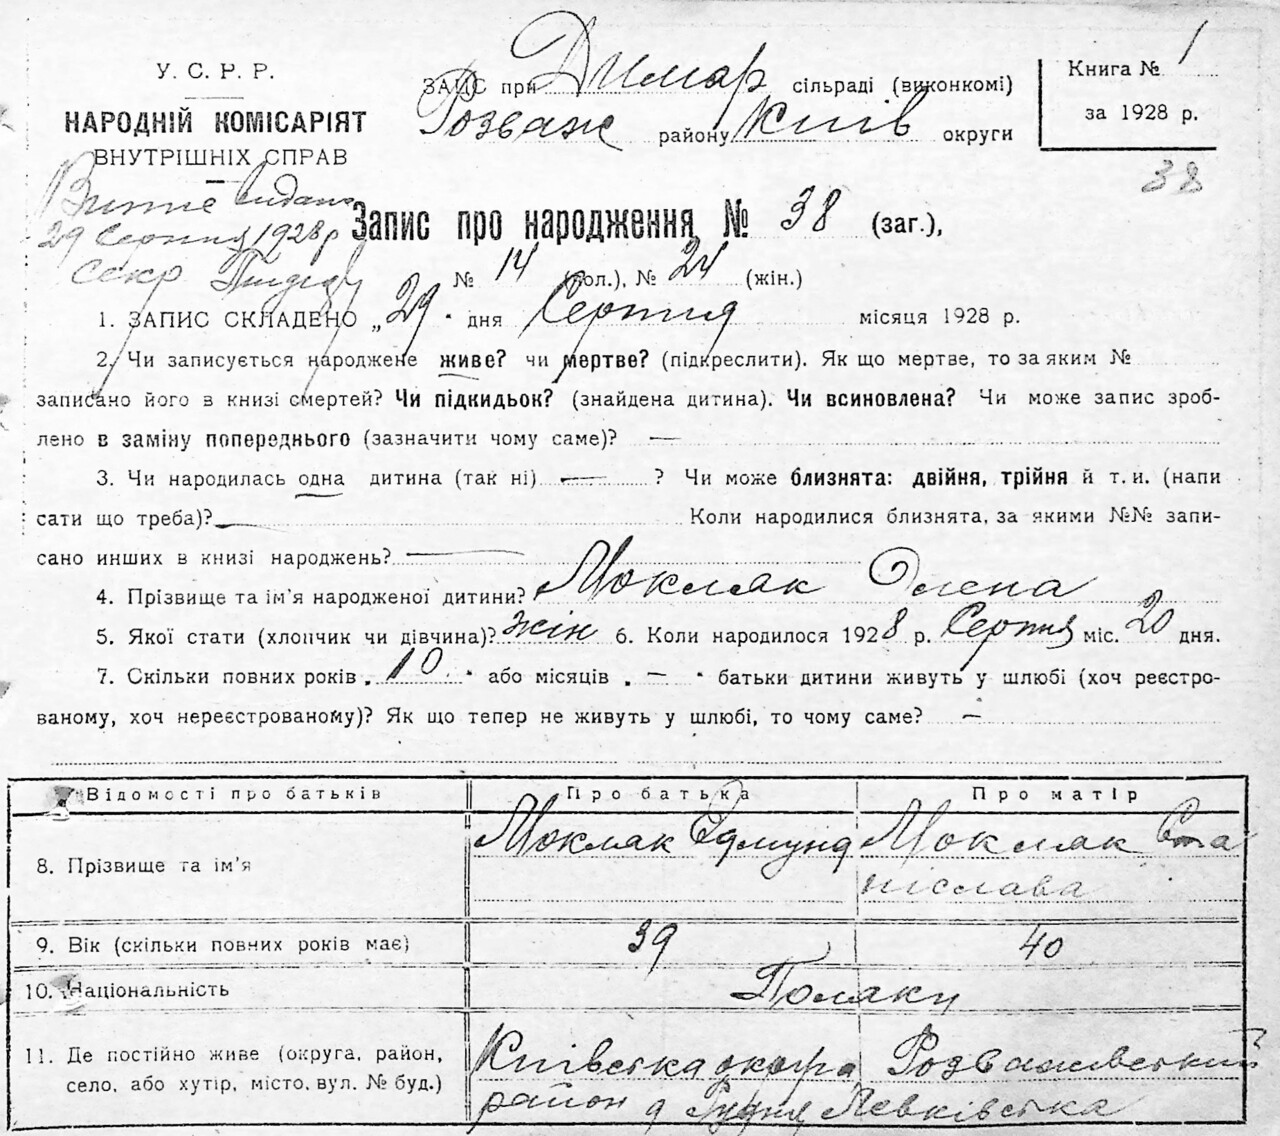 У. С. Р. Р.
НАРОДНІЙ КОМІСАРІЯТ
ВНУТРІШНІХ СПРАВ
ЗАПИС при Димар сільраді (виконкомі)
Розваж району Київ округи
Книга № 1
за 1928 р.
38
Витяг видано
29 Серпня 1928 р
Секр
Запис про народження № 38 (заг.),
№ 14 (чол.), № 24 (жін.)
1. ЗАПИС СКЛАДЕНО „29" дня Серпня місяця 1928 р.
2. Чи записується народжене живе? чи мертве? (підкреслити). Як що мертве, то за яким №
записано його в книзі смертей? Чи підкидьок? (знайдена дитина). Чи всиновлена? Чи може запис зроб-
лено в заміну попереднього (зазначити чому саме)? —
3. Чи народилась одна дитина (так ні) — ? Чи може близнята: двійня, трійня й т. и. (напи
сати що треба)? — Коли народилися близнята, за якими №№ запи-
сано инших в книзі народжень? —
4. Прізвище та ім'я народженої дитини? Мокляк Элена
5. Якої стати (хлопчик чи дівчина)? жін 6. Коли народилося 1928 р. Серпня міс. 20 дня.
7. Скільки повних років „10" або місяців „—" батьки дитини живуть у шлюбі (хоч реєстро-
ваному, хоч нереєстрованому)? Як що тепер не живуть у шлюбі, то чому саме? —
Відомості про батьків Про батька Про матір
8. Прізвище та ім'я Мокляк Едмунд Мокляк Ста
ніслава
9. Вік (скільки повних років має) 39 40
10. Національність Поляки
11. Де постійно живе (округа, район, Київська округа Розважівський
село, або хутір, місто, вул. № буд.) район д Рудня Левківська